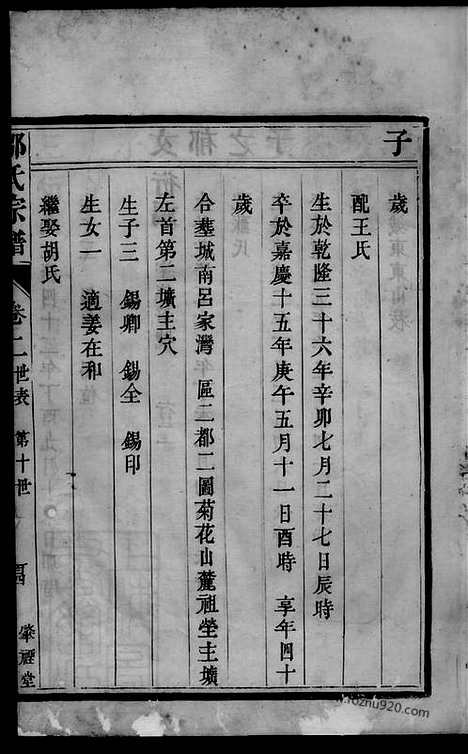 子
歲
配王氏
生於乾隆三十六年辛卯七月二十七日辰時
卒於嘉慶十五年庚午五月十一日酉時 享年四十
歲
合墓城南呂家灣 區二都二圖菊花山麓祖塋主壙
左首第二壙主穴
生子三 錫卿 錫全 錫印
生女一 適姜在和
繼娶胡氏
氏宗譜 卷二世表 第十世 肇禋堂
www.fozhu920.com